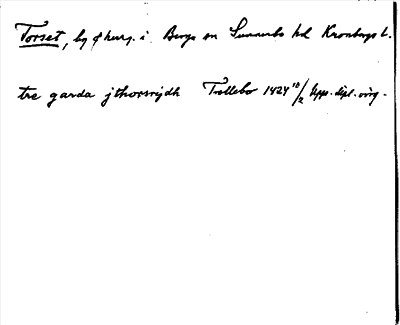 Torset, by i Berga sn Sunnerbo hd Kronbergs l.
tre garda j thorsrijdh Trællebo 1424 10/2 Upps. dipl. orig.